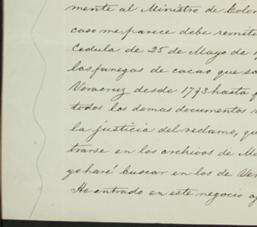 mente al Ministro de Colom
caso me parece debe remiti
Cedula de 25 de Mayo de 1
las fanegas de cacao que sa
Veracruz desde 1793 hasta
todos los demas documentos
la justicia del reclamo, qu
trarse en los archivos de Me
yo haré buscar en los de Ver
He entrado en este negocio